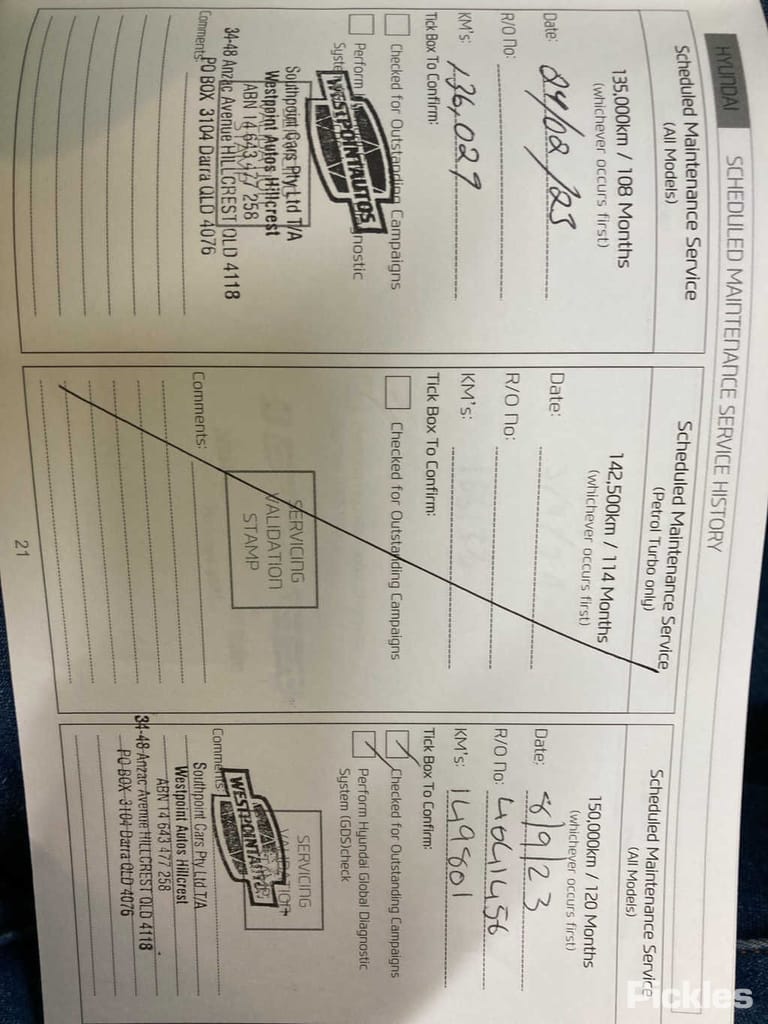 HYUNDAI SCHEDULED MAINTENANCE SERVICE HISTORY
Scheduled Maintenance Service
(All Models)
135,000km / 108 Months
(whichever occurs first)
Date: 24/02/23
R/O No:
KM's: 136,029
Tick Box To Confirm:
Checked for Outstanding Campaigns
Perform
System
WESTPOINTAUTOS
Southpoint Cars Pty Ltd T/A
Westpoint Autos Hillcrest
ABN 14 643 477 258
34-48 Anzac Avenue HILLCREST QLD 4118
PO BOX 3104 Darra QLD 4076
Comments:
Scheduled Maintenance Service
(Petrol Turbo only)
142,500km / 114 Months
(whichever occurs first)
Date:
R/O No:
KM's:
Tick Box To Confirm:
Checked for Outstanding Campaigns
SERVICING
VALIDATION
STAMP
Comments:
Scheduled Maintenance Service
(All Models)
150,000km / 120 Months
(whichever occurs first)
Date: 8/9/23
R/O No: 4641456
KM's: 149801
Tick Box To Confirm:
Checked for Outstanding Campaigns
Perform Hyundai Global Diagnostic
System (GDS)check
SERVICING
VALIDATION
WESTPOINTAUTOS
Comments:
Southpoint Cars Pty Ltd T/A
Westpoint Autos Hillcrest
ABN 14 643 477 258
34-48 Anzac Avenue HILLCREST QLD 4118
PO BOX 3104 Darra QLD 4076
21
Pickles